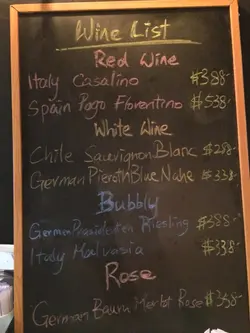 Wine List
Red Wine
Italy Casalino $388-
Spain Pago Florentino $538-
White Wine
Chile Sauvignon Blanc $288-
German Pieroth Blue Nahe $338-
Bubbly
German Riesling $388-
Italy Malvasia $338-
Rose
German Baum Merlot Rose $348-